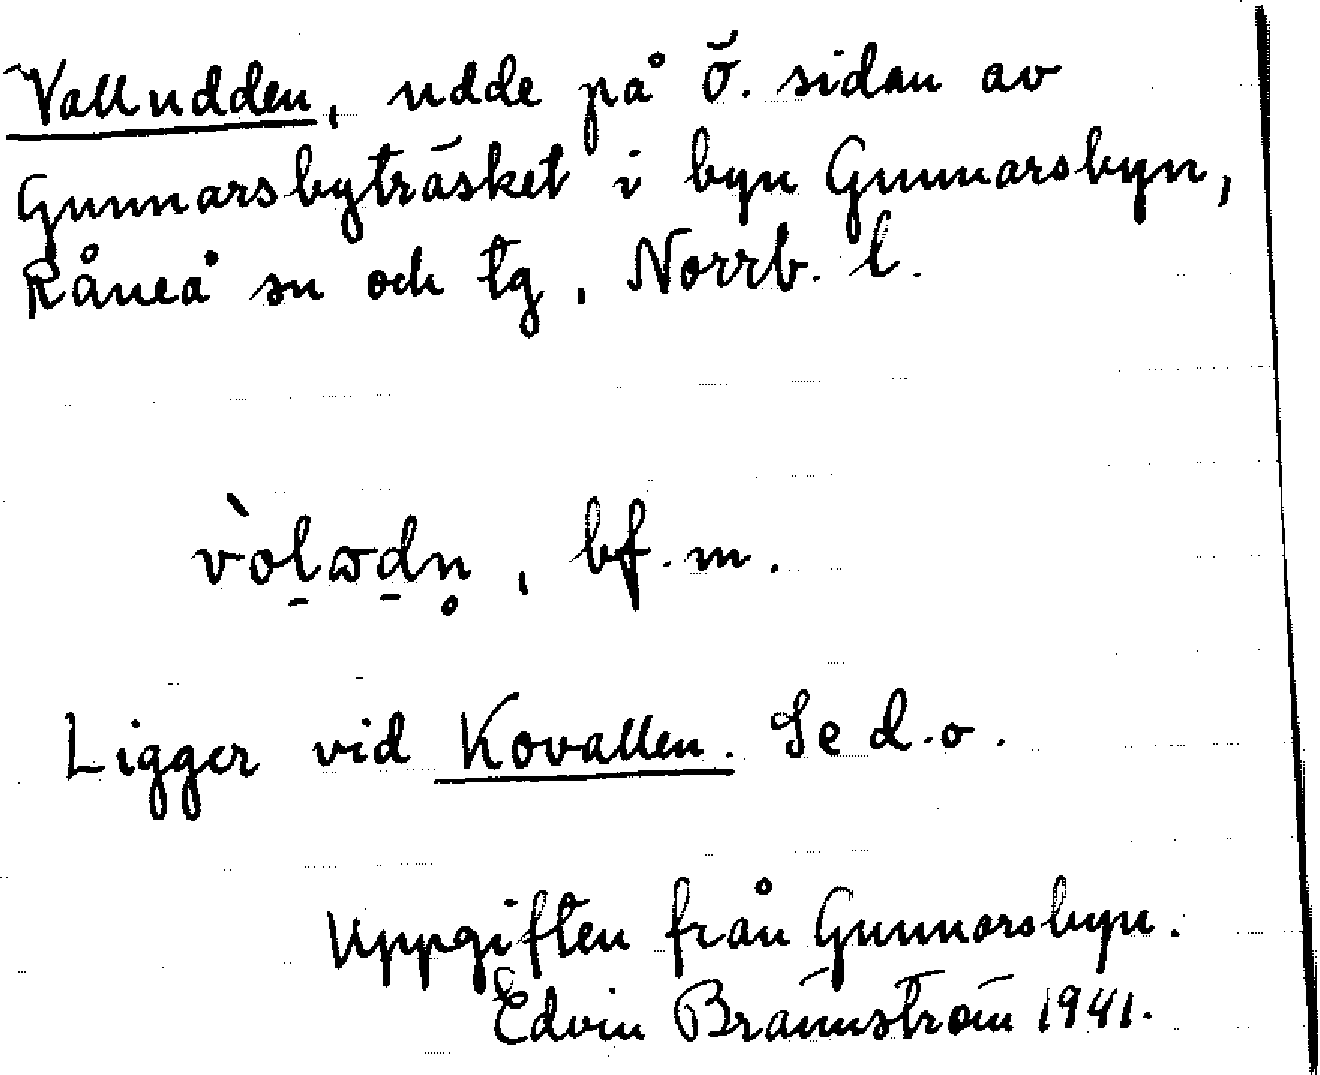 Valludden, udde på ö. sidan av
Gunnarsbyträsket i byn Gunnarsbyn,
Råneå sn och tg, Norrb. l.
vòl̠ɷd̠n̥, bf. m.
Ligger vid Kovallen. Se d.o.
Uppgiften från Gunnarsbyn.
Edvin Brännström 1941.